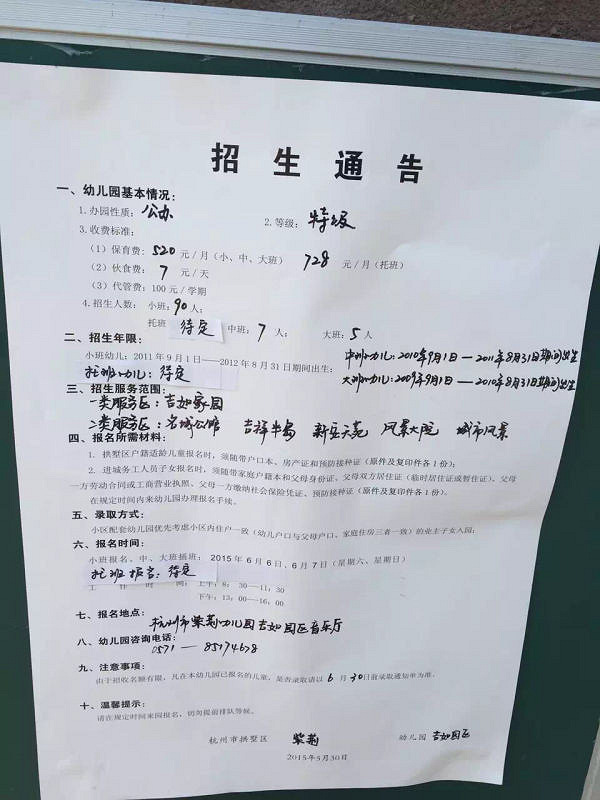 招生通告
一、幼儿园基本情况：
1.办园性质：公办 2.等级：特级
3.收费标准：
（1）保育费：520元/月（小、中、大班） 728元/月（托班）
（2）伙食费：7元/天
（3）代管费：100元/学期
4.招生人数：小班：90人；
托班 待定 中班：7人； 大班：5人
二、招生年限：
小班幼儿：2011年9月1日——2012年8月31日期间出生； 中班幼儿：2010年9月1日——2011年8月31日期间出生
托班幼儿：待定 大班幼儿：2009年9月1日——2010年8月31日期间出生
三、招生服务范围：
一类服务区：吉如家园
二类服务区：名城公馆 吉祥半岛 新豆天苑 风景大院 城市风景
四、报名所需材料：
1．拱墅区户籍适龄儿童报名时，须随带户口本、房产证和预防接种证（原件及复印件各1份）；
2．进城务工人员子女报名时，须随带家庭户籍本和父母身份证、父母双方居住证（临时居住证或暂住证）、父母
一方劳动合同或工商营业执照、父母一方缴纳社会保险凭证、预防接种证（原件及复印件各1份）。
在规定时间内来幼儿园办理报名手续。
五、录取方式：
小区配套幼儿园优先考虑小区内住户一致（幼儿户口与父母户口、家庭住房三者一致）的业主子女入园；
六、报名时间：
小班报名、中、大班插班：2015年6月6日、6月7日（星期六、星期日）
托班报名：待定
工作时间：上午8：30—11：30
下午：13：00—16：00
七、报名地点：杭州市紫荆幼儿园吉如园区音乐厅
八、幼儿园咨询电话：
0571——85174678
九、注意事项：
由于招收名额有限，凡在本幼儿园已报名的儿童，是否录取请以6月30日前录取通知单为准。
十、温馨提示：
请在规定时间来园报名，切勿提前排队等候。
杭州市拱墅区 紫荆 幼儿园 吉如园区
2015年5月30日